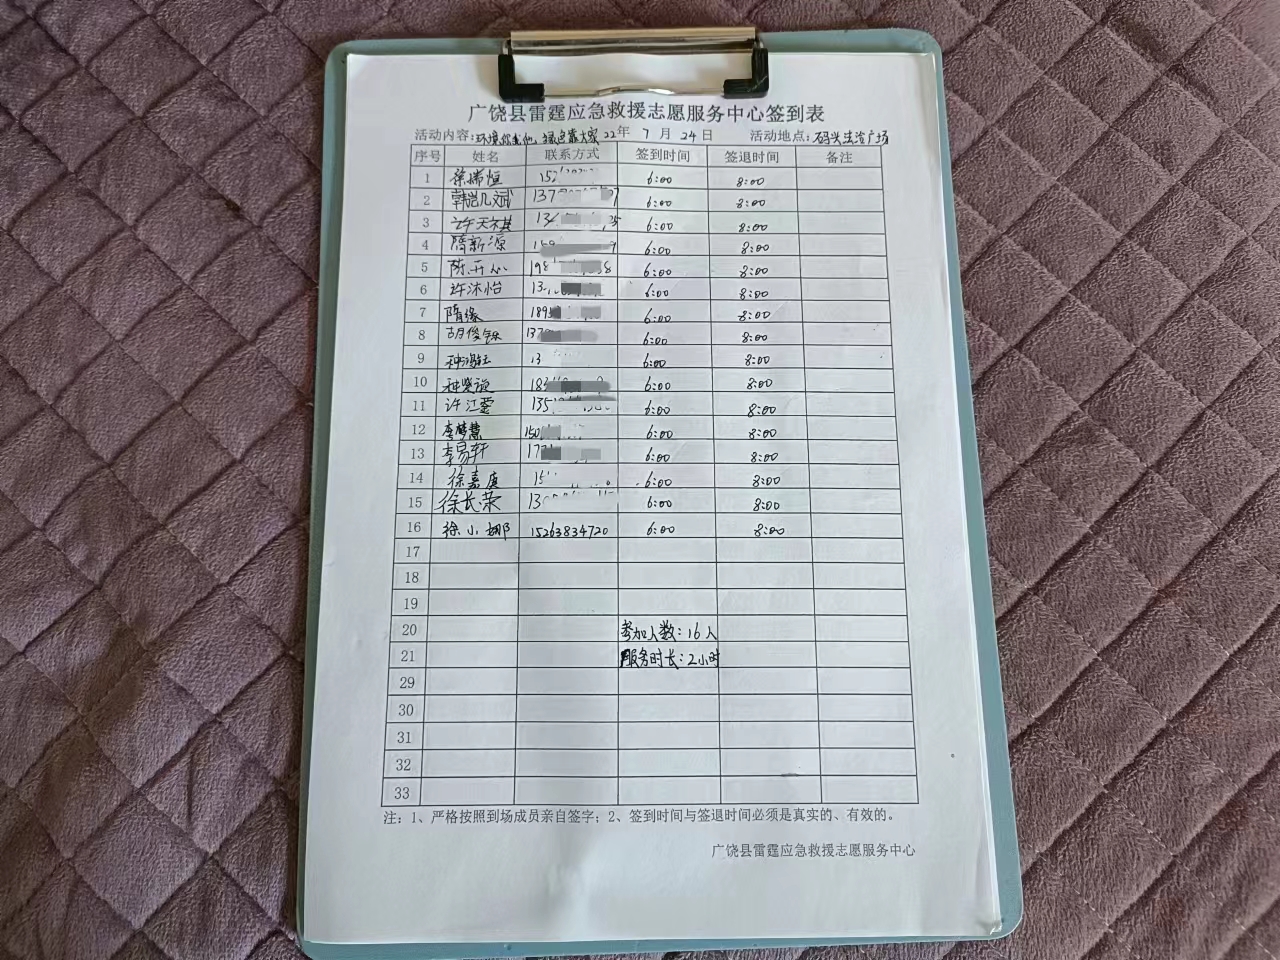 广饶县雷霆应急救援志愿服务中心签到表
活动内容: 环境 靠大家 22年 7月 24日 活动地点: 码头法治广场
序号 姓名 联系方式 签到时间 签退时间 备注
1 徐瑞恒 15 6:00 8:00
2 韩凯斌 137 6:00 8:00
3 许天祺 134 6:00 8:00
4 隋新源 6:00 8:00
5 陈开心 198 6:00 8:00
6 许沐怡 13 6:00 8:00
7 隋缘 189 6:00 8:00
8 胡俊 137 6:00 8:00
9 种 13 6:00 8:00
10 种 183 6:00 8:00
11 许江蓥 135 6:00 8:00
12 李梦慧 150 6:00 8:00
13 李易轩 17 6:00 8:00
14 徐嘉 15 6:00 8:00
15 徐长荣 13 6:00 8:00
16 徐小娜 15263834720 6:00 8:00
17
18
19
20 参加人数:16人
21 服务时长:2小时
29
30
31
32
33
注:1、严格按照到场成员亲自签字;2、签到时间与签退时间必须是真实的、有效的。
广饶县雷霆应急救援志愿服务中心